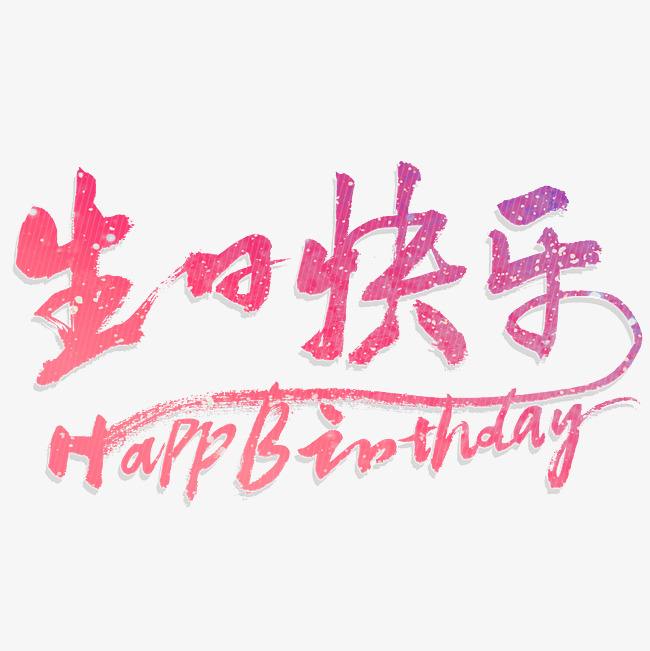 生日快乐
HappBirthday